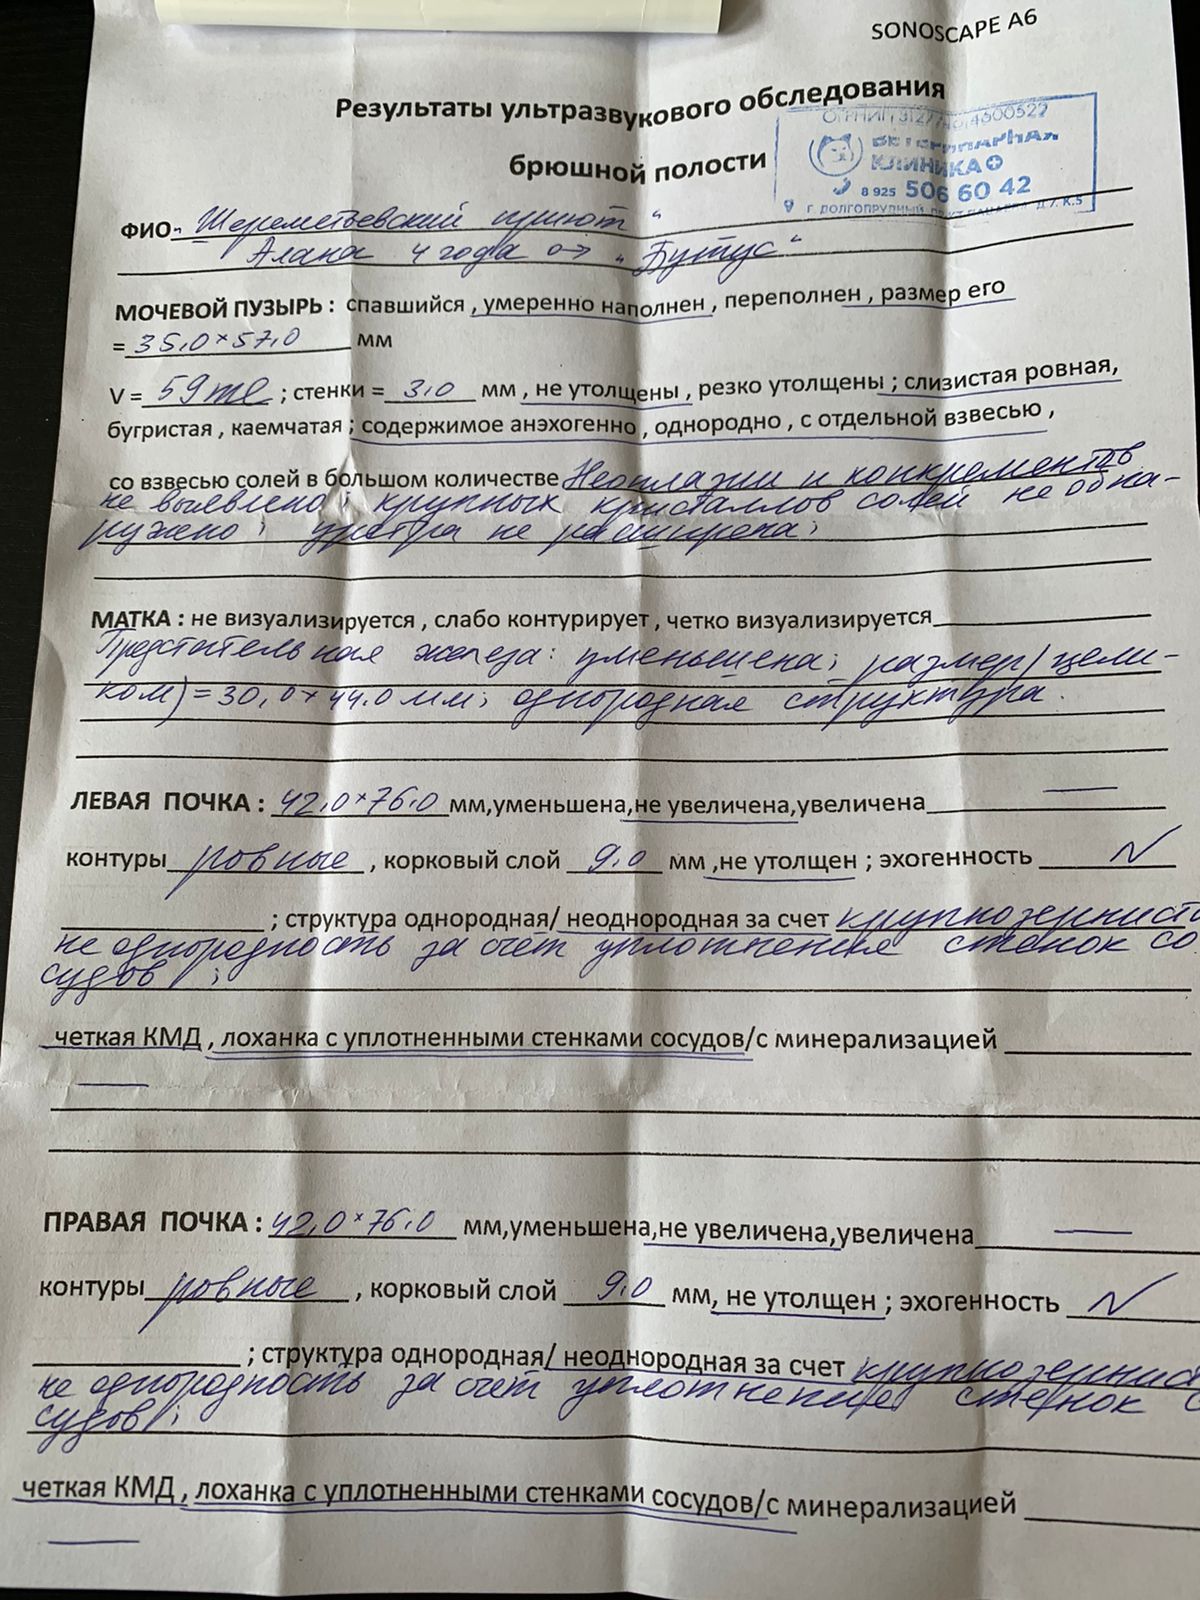 SONOSCAPE A6
Результаты ультразвукового обследования
брюшной полости
ВЕТЕРИНАРНАЯ
КЛИНИКА
8 925 506 60 42
Г. ДОЛГОПРУДНЫЙ, Д.7, К.5
ФИО „Шереметьевский приют“
Алана 4 года → „Бутус“
МОЧЕВОЙ ПУЗЫРЬ : спавшийся , умеренно наполнен , переполнен , размер его
= 35,0×57,0 мм
V = 59 ml ; стенки = 3,0 мм , не утолщены , резко утолщены ; слизистая ровная,
бугристая , каемчатая ; содержимое анэхогенно , однородно , с отдельной взвесью ,
со взвесью солей в большом количестве Неоплазии и конкрементов
не выявлено ; крупных кристаллов солей не обна-
ружено ; уретра не расширена ;
МАТКА : не визуализируется , слабо контурирует , четко визуализируется
Предстательная железа: уменьшена; размер (цели-
ком) = 30,0×44,0 мм; однородная структура.
ЛЕВАЯ ПОЧКА : 42,0×76,0 мм,уменьшена,не увеличена,увеличена —
контуры ровные , корковый слой 9,0 мм ,не утолщен ; эхогенность N
; структура однородная/ неоднородная за счет крупнозернист
не однородность за счёт уплотнения стенок со
судов ;
четкая КМД , лоханка с уплотненными стенками сосудов/с минерализацией
—
ПРАВАЯ ПОЧКА : 42,0×76,0 мм,уменьшена,не увеличена,увеличена —
контуры ровные , корковый слой 9,0 мм, не утолщен ; эхогенность N
; структура однородная/ неоднородная за счет крупнозернист
не однородность за счёт уплотнение стенок с
судов ;
четкая КМД , лоханка с уплотненными стенками сосудов/с минерализацией
—